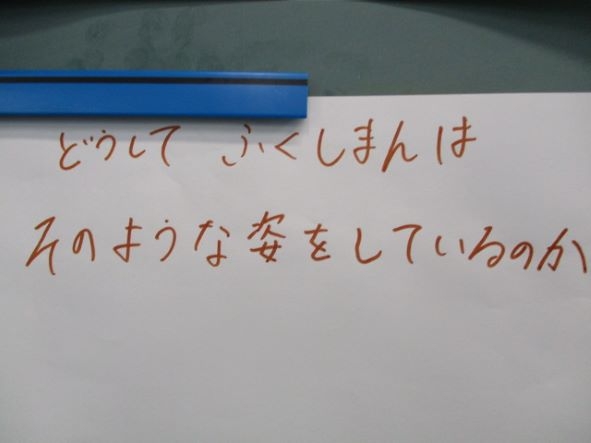 どうして ふくしまんは
そのような姿をしているのか